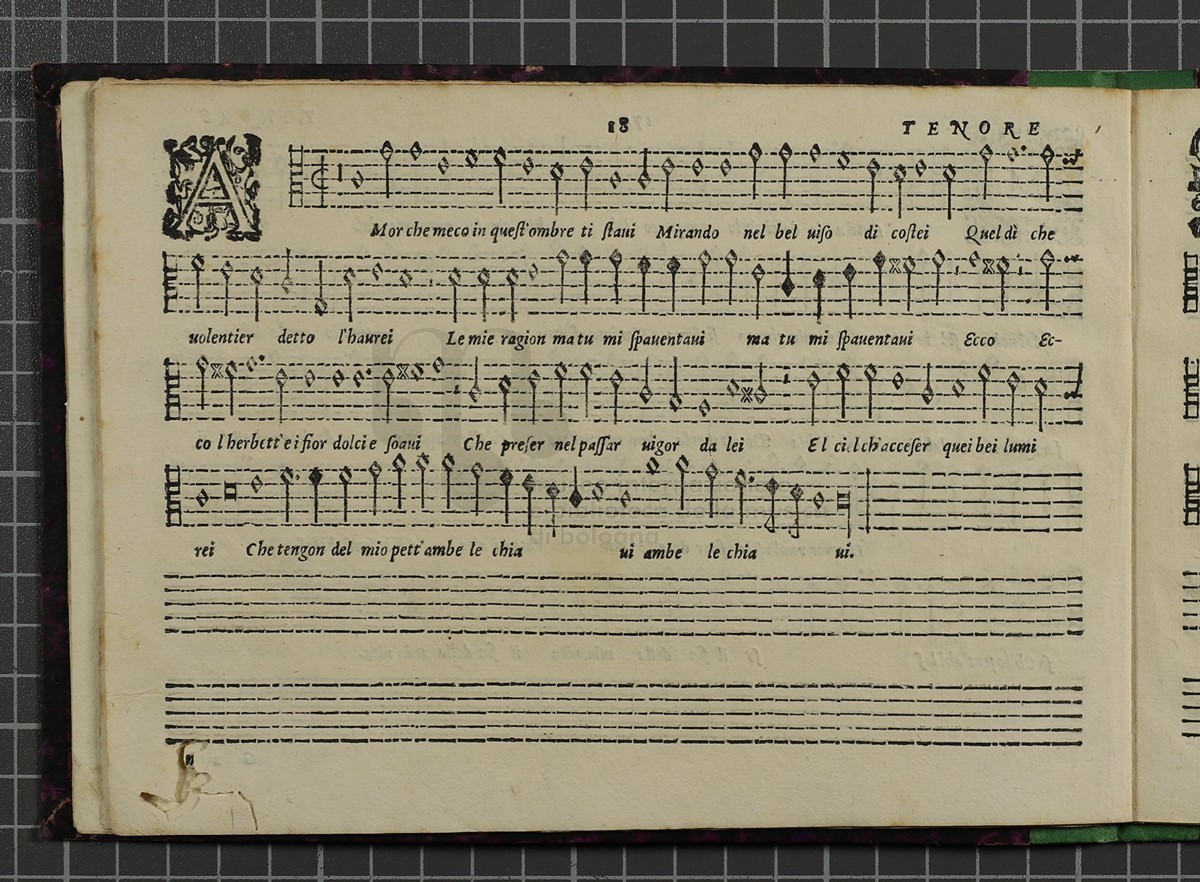 18 TENORE
AMor che meco in quest'ombre ti staui Mirando nel bel uiso di costei Quel dì che
uolentier detto l'haurei Le mie ragion ma tu mi spauentaui ma tu mi spauentaui Ecco Ec-
co l'herbett'e i fior dolci e soaui Che preser nel passar uigor da lei El ciel ch'acceser quei bei lumi
rei Che tengon del mio pett'ambe le chia ui ambe le chia ui.
di bologna